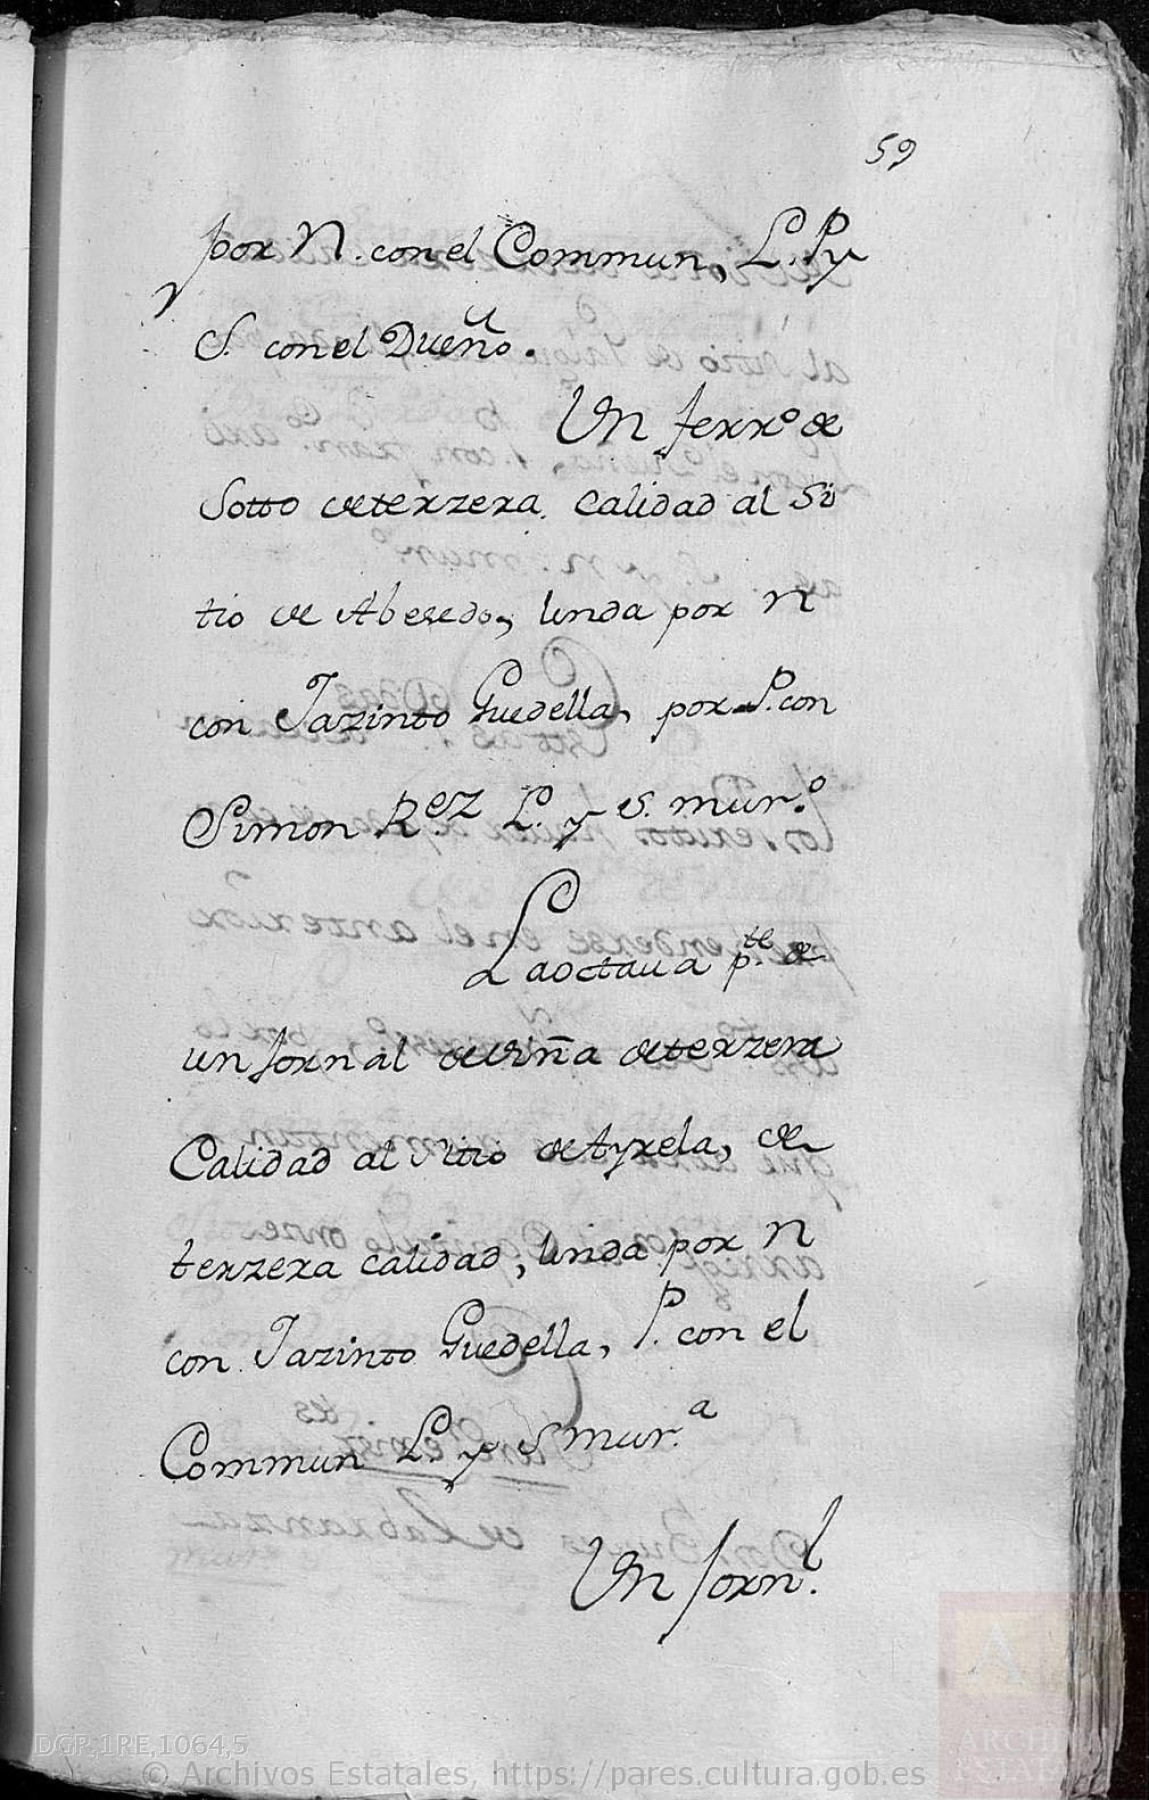 59
por N. con el Commun, L. P y
S. con el Dueño.
Un ferr.º de
Sotto de terzera Calidad al Si
tio de Abesedo, linda por N
con Jazinto Guedella, por P. con
Simon R.ez L. y S. mur.º
La octaua p.te de
un Jornal de viña de terzera
Calidad al Sitio de Ayrela, de
terzera calidad, linda por N
con Jazinto Guedella, P. con el
Commun L. y S mur.a
Un Jorn.l
DGP,1RE,1064,5
© Archivos Estatales, https://pares.cultura.gob.es
ARCHIVOS
ESTATALES